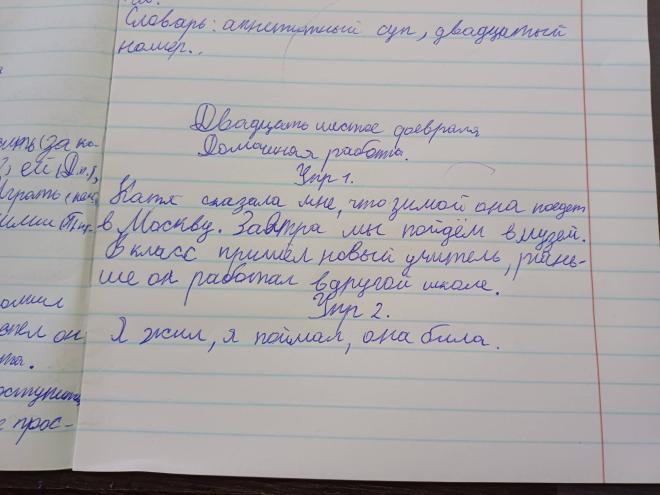 Словарь: аппетитный суп, двадцатый
номер..
Двадцать шестое февраля
Домашняя работа.
Упр 1.
Катя сказала мне, что зимой она поедет
в Москву. Завтра мы пойдём в музей.
В класс пришёл новый учитель, рань-
ше он работал в другой школе.
Упр 2.
Я жил, я поймал, она била.